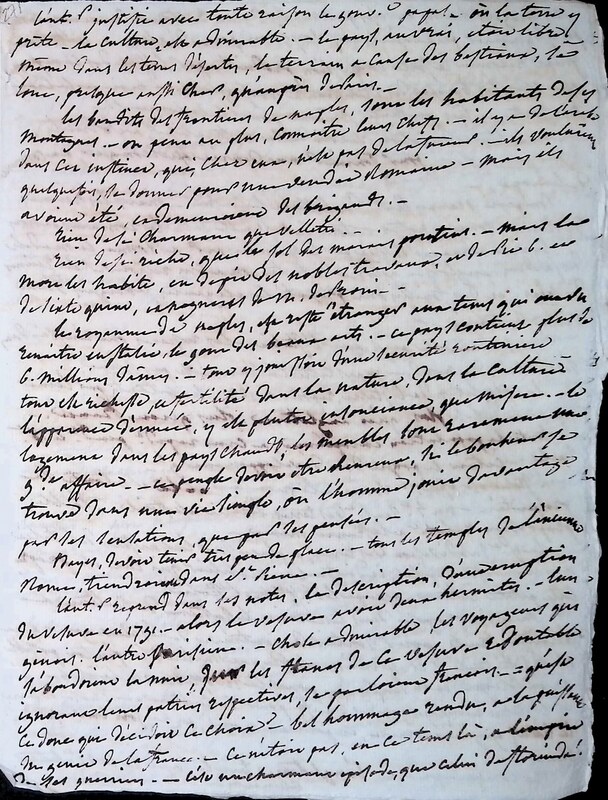 l'aut.r justifie avec toute raison le gouv.t papal. - où la terre y
prête - la culture, est admirable. - le pays, au vrai, étoit libre
même dans les terres désertes, le terrain a cause des bestiaux, se
loue, presque aussi cher, qu'auprès de Paris. -
les bandits des frontieres de naples, sont les habitants des
montagnes. - on peut au plus, connoître leurs chefs. - il y a de l'
dans cet instinct, qui, chez eux, n'est pas de la fureur. - ils vouloient
quelquefois, se donner pour une vendée Romaine - mais ils
avoient été, et demeuroient des brigands. -
Rien de si charmant que velletri. -
Rien de si riche, que le sol des marais pontins. - mais la
mort les habite, en dépit des nobles travaux, de Pie 6. et
de sixte quint, et de M. de Prony. -
le royaume de naples, est resté étranger aux tems qui ont vu
renaître en italie, le gout des beaux arts. - ce pays contient plus de
6. millions d'âmes. - tout y jouissoit d'une sécurité routiniere
tout est richesse, et fertilité dans la nature, dans la culture
l'apparence d'ennui, y est plutôt insouciance que misere. - le
logement dans les pays chauds, les meubles sont rarement une
g.de affaire. - ce peuple devoit être heureux, si le bonheur se
trouve dans une vie simple, où l'homme jouit davantage
par ses sensations, que par ses pensées. -
Bayes, devoit tenir très peu de place. - tous les temples de l'ancienne
Rome, tiendroient dans S.t Pierre. -
l'aut.r reprend dans ses notes, la description, d'une eruption
du vésuve en 1791. - alors le vésuve avoit deux hermites. - l'un
génois, l'autre Parisien. - chose admirable les voyageurs qui
abondoient la nuit, sur les flancs de ce vésuve redoutable
ignorant leurs patries respectives, se parloient françois. - qu'est
ce donc que décidoit ce choix ? - bel hommage rendu, a la puissance
du genie de la france. - ce n'étoit pas, en ce tems là, a l'empire
de ses guerriers. - c'est un charmant épisode, que celui de